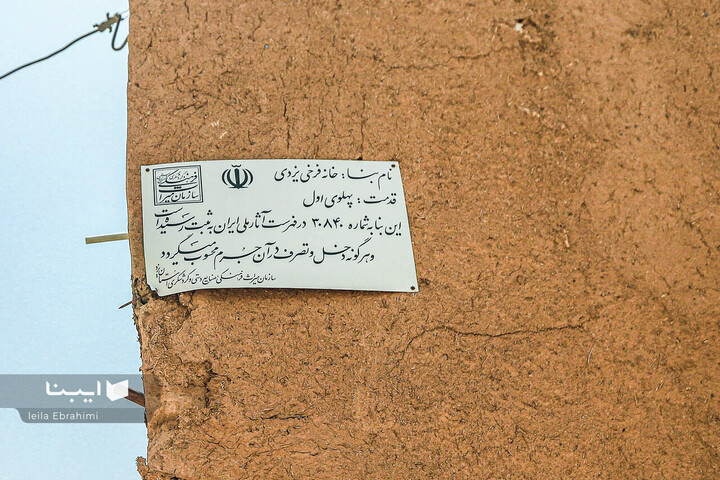 نام بنا : خانه فرخی یزدی
قدمت : پهلوی اول
این بنا به شماره ۳۰۸۴۰ در فهرست آثار ملی ایران به ثبت رسیده است
و هرگونه دخل و تصرف در آن جرم محسوب میگردد
سازمان میراث فرهنگی صنایع دستی و گردشگری استان یزد
سازمان میراث فرهنگی
ایبنا
leila Ebrahimi